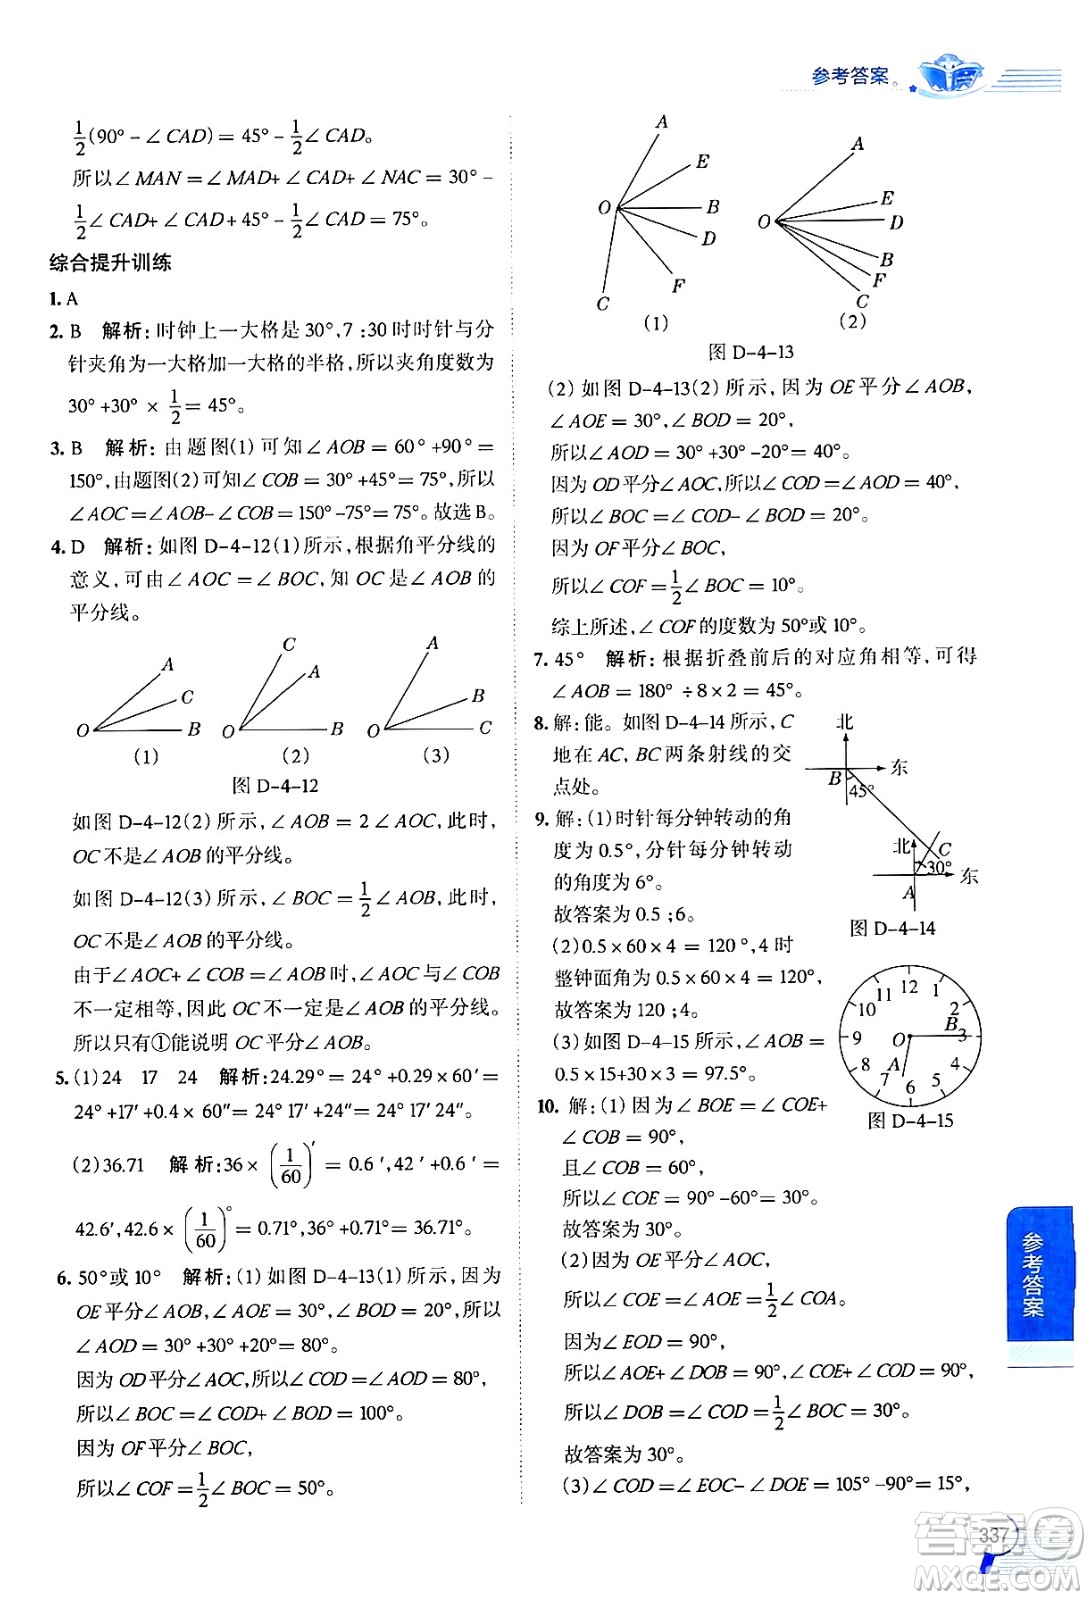 参考答案。
1/2(90° - ∠CAD) = 45° - 1/2∠CAD。
所以∠MAN = ∠MAD + ∠CAD + ∠NAC = 30° -
1/2∠CAD + ∠CAD + 45° - 1/2∠CAD = 75°。
综合提升训练
1. A
2. B 解析:时钟上一大格是30°,7:30时时针与分
针夹角为一大格加一大格的半格,所以夹角度数为
30° +30° × 1/2 = 45°。
3. B 解析:由题图(1)可知∠AOB = 60° +90° =
150°,由题图(2)可知∠COB = 30° +45° = 75°,所以
∠AOC = ∠AOB - ∠COB = 150° -75° = 75°。故选B。
4. D 解析:如图D-4-12(1)所示,根据角平分线的
意义,可由∠AOC = ∠BOC,知OC是∠AOB的
平分线。
A
C
O B
(1)
C
A
O B
(2)
A
B
O C
(3)
图D-4-12
如图D-4-12(2)所示,∠AOB = 2∠AOC,此时,
OC不是∠AOB的平分线。
如图D-4-12(3)所示,∠BOC = 1/2∠AOB,此时,
OC不是∠AOB的平分线。
由于∠AOC + ∠COB = ∠AOB时,∠AOC与∠COB
不一定相等,因此OC不一定是∠AOB的平分线。
所以只有①能说明OC平分∠AOB。
5. (1)24 17 24 解析:24.29° = 24° +0.29 × 60′ =
24° +17′ +0.4 × 60″ = 24° 17′ +24″ = 24° 17′ 24″。
(2)36.71 解析:36 × (1/60)′ = 0.6′,42′ +0.6′ =
42.6′,42.6 × (1/60)° = 0.71°,36° +0.71° = 36.71°。
6. 50°或10° 解析:(1)如图D-4-13(1)所示,因为
OE平分∠AOB,∠AOE = 30°,∠BOD = 20°,所以
∠AOD = 30° +30° +20° = 80°。
因为OD平分∠AOC,所以∠COD = ∠AOD = 80°,
所以∠BOC = ∠COD + ∠BOD = 100°。
因为OF平分∠BOC,
所以∠COF = 1/2∠BOC = 50°。
A
E
O B
D
F
C
(1)
A
E
O D
B
F
C
(2)
图D-4-13
(2)如图D-4-13(2)所示,因为OE平分∠AOB,
∠AOE = 30°,∠BOD = 20°,
所以∠AOD = 30° +30° -20° = 40°。
因为OD平分∠AOC,所以∠COD = ∠AOD = 40°,
所以∠BOC = ∠COD - ∠BOD = 20°。
因为OF平分∠BOC,
所以∠COF = 1/2∠BOC = 10°。
综上所述,∠COF的度数为50°或10°。
7. 45° 解析:根据折叠前后的对应角相等,可得
∠AOB = 180° ÷ 8 × 2 = 45°。
8. 解:能。如图D-4-14所示,C
地在AC,BC两条射线的交
点处。
北
东
B
45°
北
C
30°
东
A
图D-4-14
9. 解:(1)时针每分钟转动的角
度为0.5°,分针每分钟转动
的角度为6°。
故答案为0.5;6。
(2)0.5 × 60 × 4 = 120°,4时
整钟面角为0.5 × 60 × 4 = 120°,
故答案为120;4。
(3)如图D-4-15所示,
0.5 × 15+30 × 3 = 97.5°。
12 1 2 3 4 5 6 7 8 9 10 11
O B A
图D-4-15
10. 解:(1)因为∠BOE = ∠COE +
∠COB = 90°,
且∠COB = 60°,
所以∠COE = 90° -60° = 30°。
故答案为30°。
(2)因为OE平分∠AOC,
所以∠COE = ∠AOE = 1/2∠COA。
因为∠EOD = 90°,
所以∠AOE + ∠DOB = 90°,∠COE + ∠COD = 90°,
所以∠DOB = ∠COD = 1/2∠BOC = 30°。
故答案为30°。
(3)∠COD = ∠EOC - ∠DOE = 105° -90° = 15°,
参考答案
337
答案圈
MXQE.COM